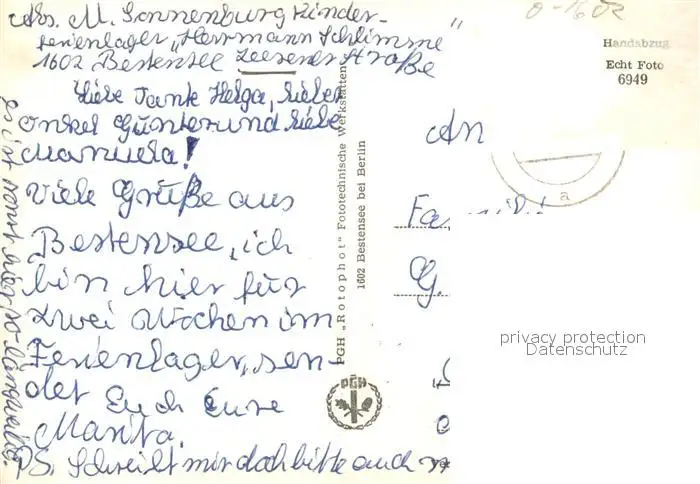 Abs. M. Sonnenburg Kinder-
ferienlager „Herrmann Schlimme"
1602 Bestensee Zeesener Straße
Liebe Tante Helga, lieber
Onkel Günter und liebe
Manuela!
Viele Grüße aus
Bestensee, ich
bin hier für
zwei Wochen im
Ferienlager, sen-
det Euch Eure
Marita.
PS. Schreibt mir doch bitte auch
es ist sonst hier so langweilig.
PGH „Rotophot" Fototechnische Werkstätten
1602 Bestensee bei Berlin
PGH
0-1602
Handabzug
Echt Foto
6949
An
a
Fa
G.
privacy protection
Datenschutz